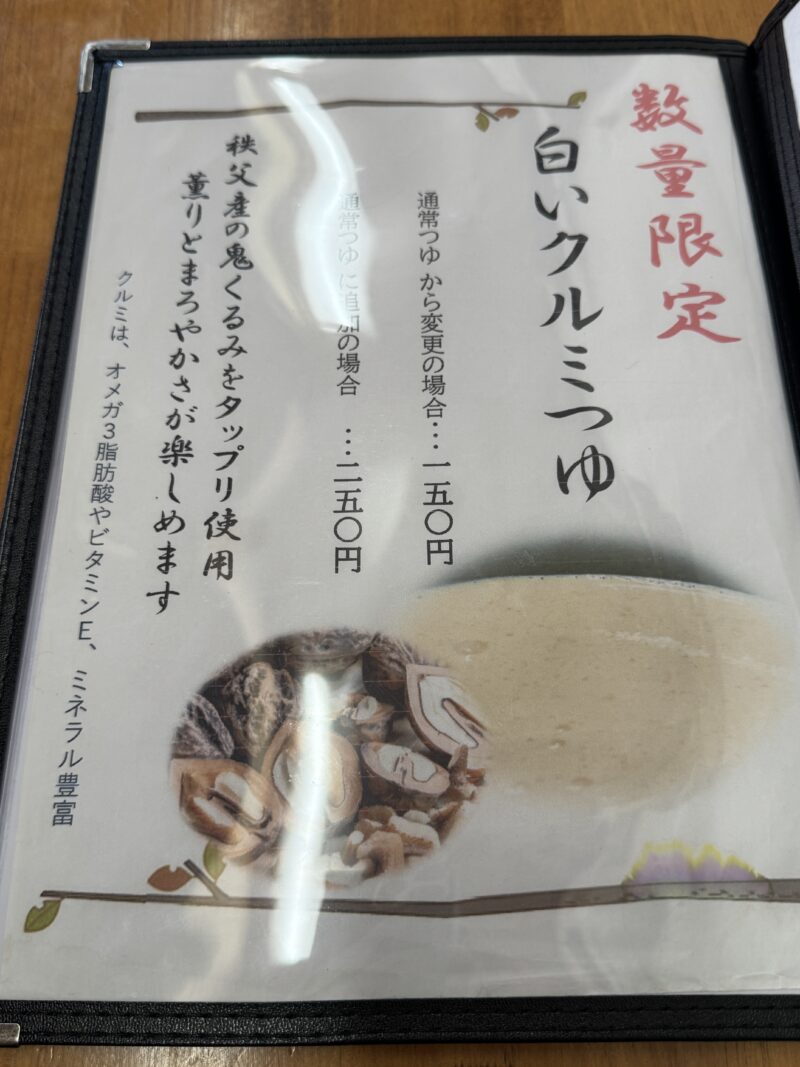 数量限定
白いクルミつゆ
通常つゆ から変更の場合…一五〇円
通常つゆ に追加の場合 …二五〇円
秩父産の鬼くるみをタップリ使用
薫りとまろやかさが楽しめます
クルミは、オメガ3脂肪酸やビタミンE、ミネラル豊富